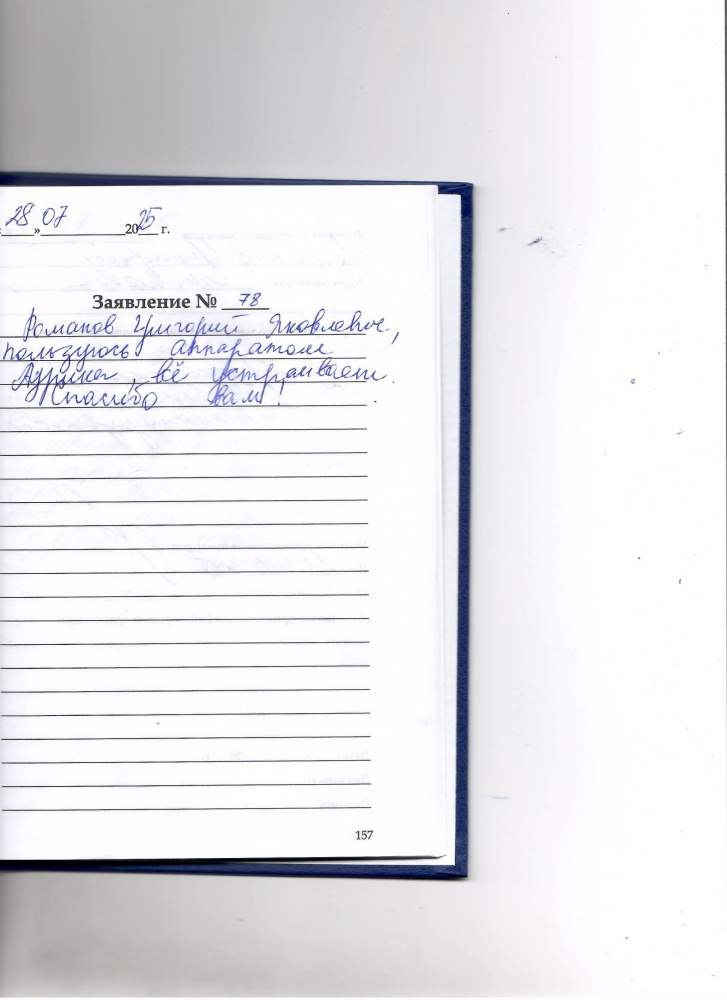 28 » 07 2025 г.
Заявление № 78
Романов Григорий Яковлевич,
пользуюсь аппаратом
Аурика, всё устраивает.
Спасибо Вам!
157